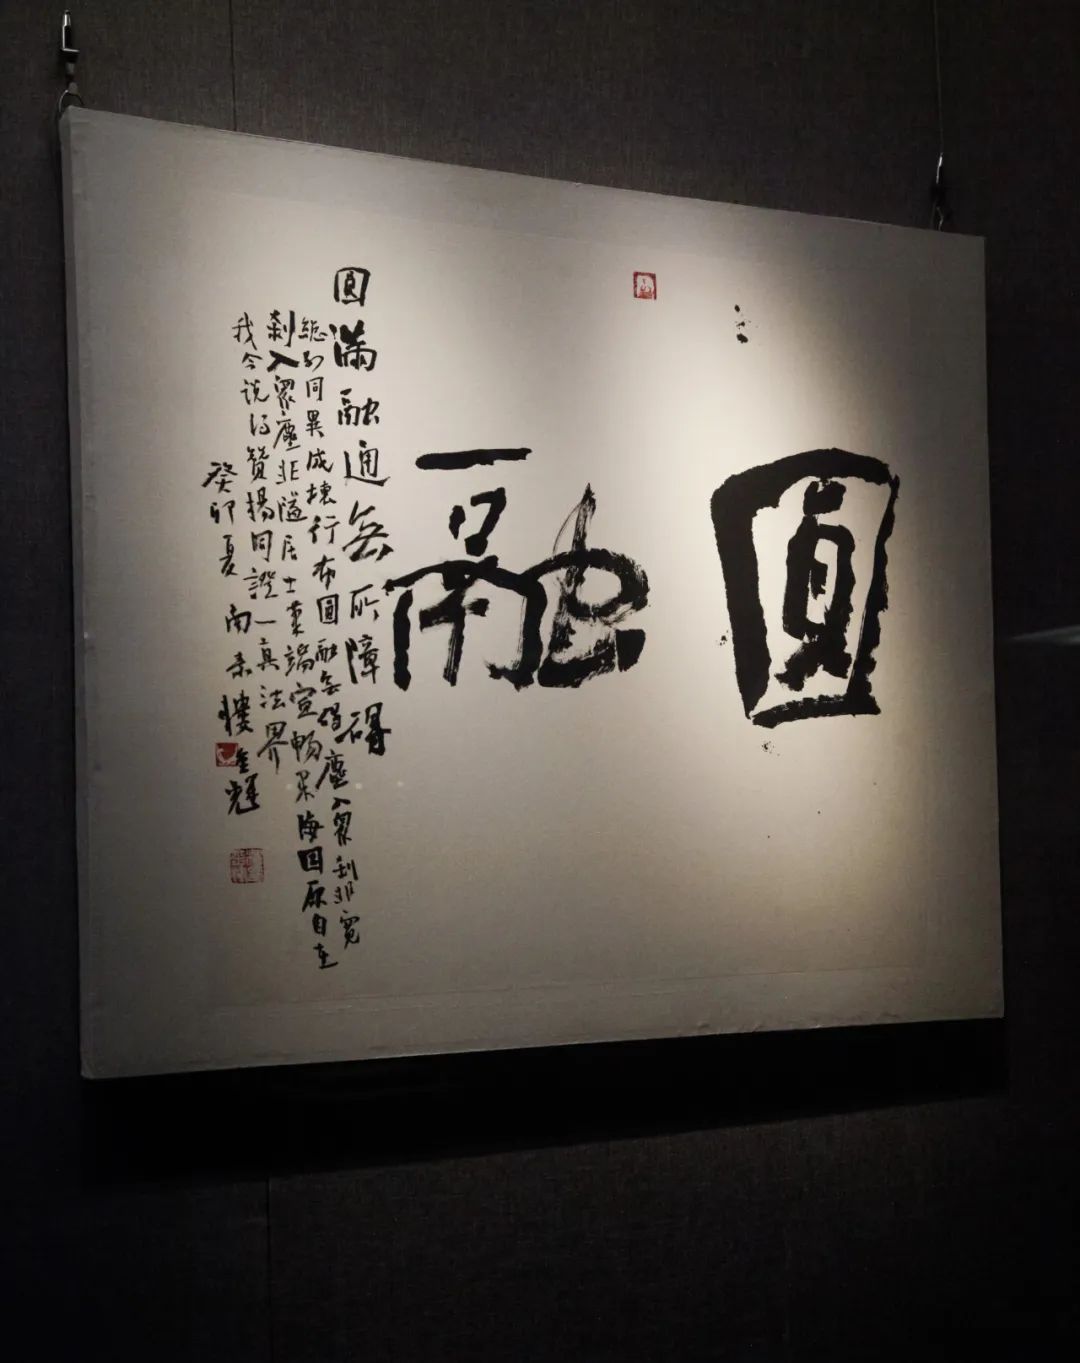 圓融
圓滿融通無所障碍
總别同異成壞行布圓融無碍塵入眾刹非寬
刹入眾塵非隘居士毫端宣畅果海因原自在
我今说贊揚同證一真法界
癸卯夏南京樓金輝